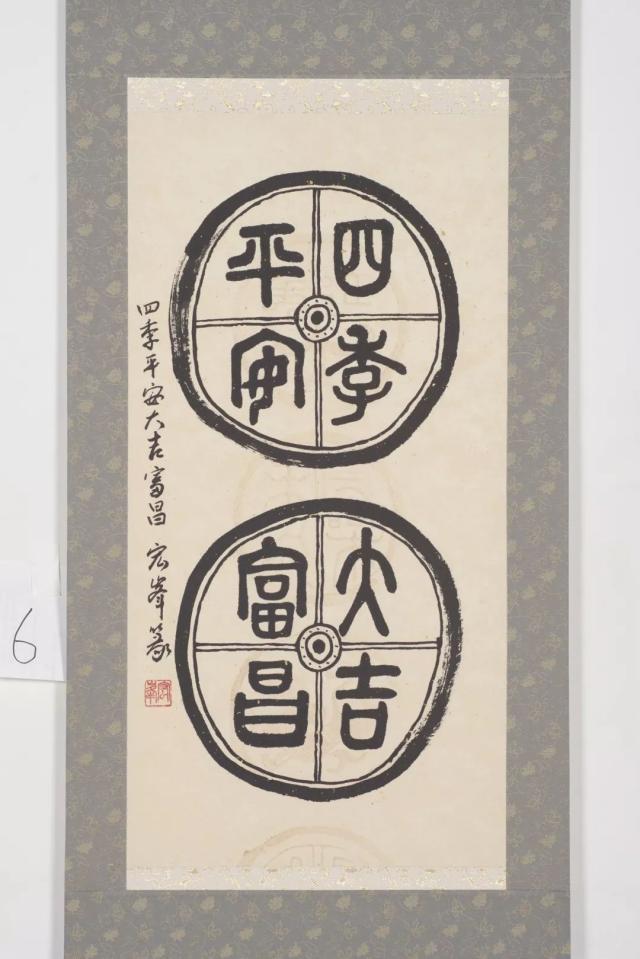 四季
平安
大吉
富昌
四季平安大吉富昌 宏峯篆
宏峯
6